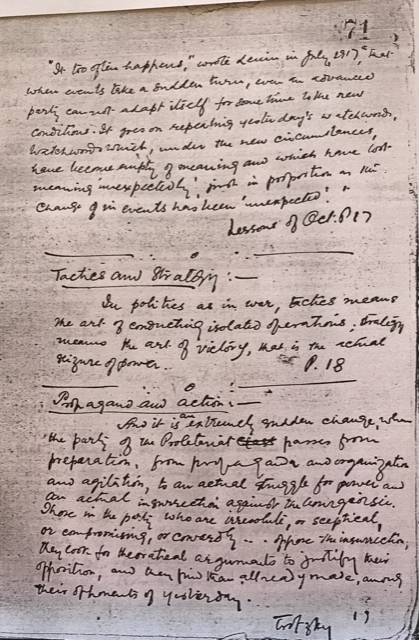 71
"It too often happens," wrote Lenin in July 1917, "that
when events take a sudden turn, even an advanced
party cannot adapt itself for some time to the new
conditions. It goes on repeating yesterday's watchwords,
watchwords which, under the new circumstances,
have become empty of meaning and which have lost
meaning unexpectedly, just in proportion as the
change of in events has been 'unexpected'."
Lessons of Oct. P 17
Tactics and Strategy :—
In politics as in war, tactics means
the art of conducting isolated operations; strategy
means the art of victory, that is the actual
seizure of power.
P. 18
Propaganda and action :—
And it is an extremely sudden change, when
the party of the Proletariat Class passes from
preparation, from propaganda and organization
and agitation, to an actual struggle for power and
an actual insurrection against the bourgeoisie.
Those in the party who are irresolute, or sceptical,
or compromising, or cowardly ... oppose the insurrection,
they look for theoretical arguments to justify their
opposition, and they find them all ready made, among
their opponents of yesterday.
Trotzky 19